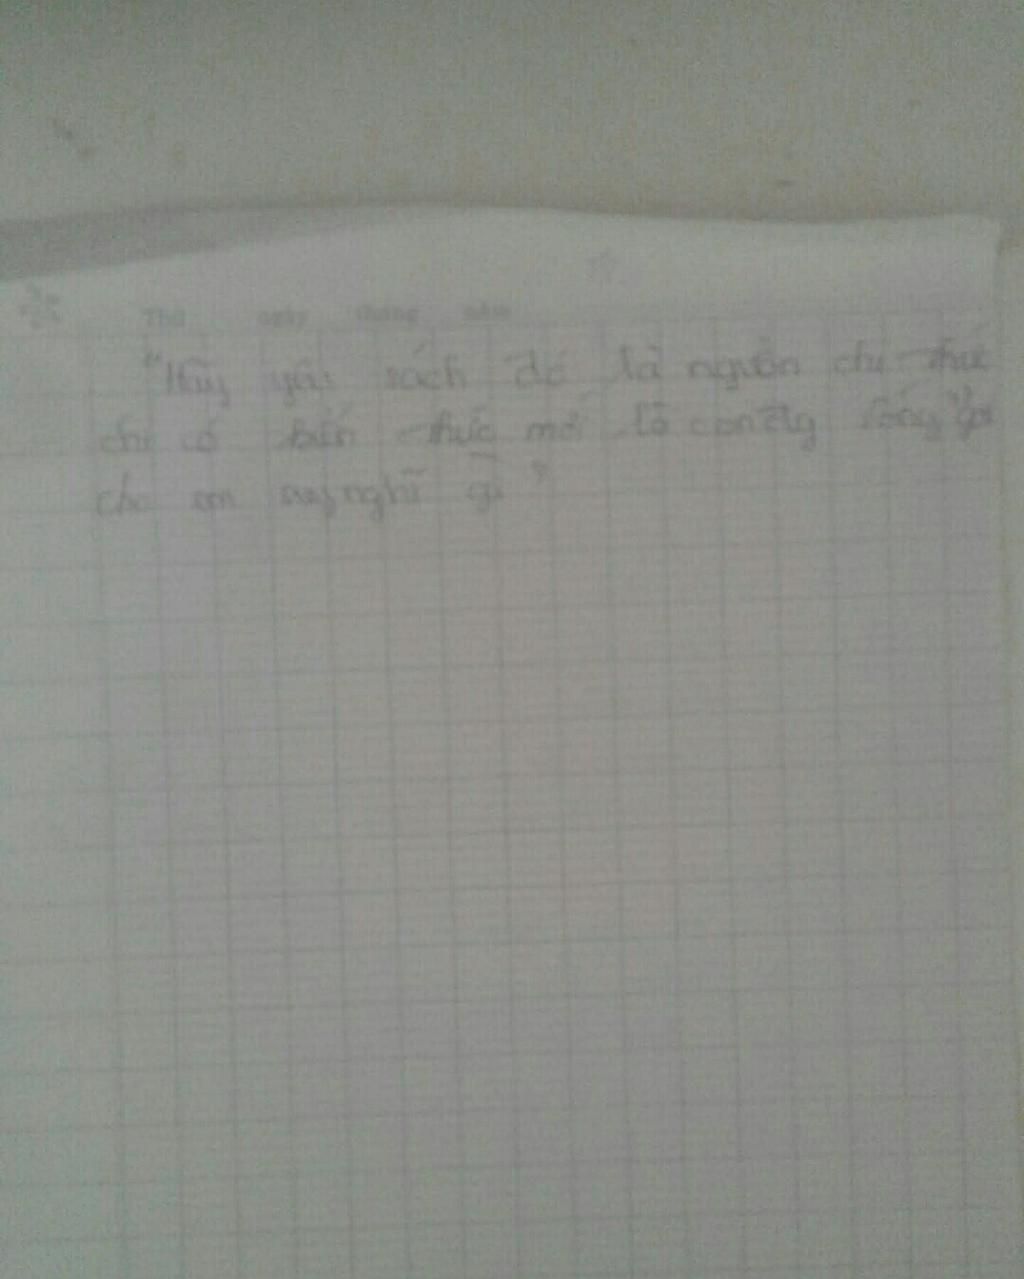 Thứ ngày tháng năm
"Hãy yêu sách đó là nguồn chi thức
chỉ có kiến thức mới là con đg sống" gợi
cho em suy nghĩ gì ?